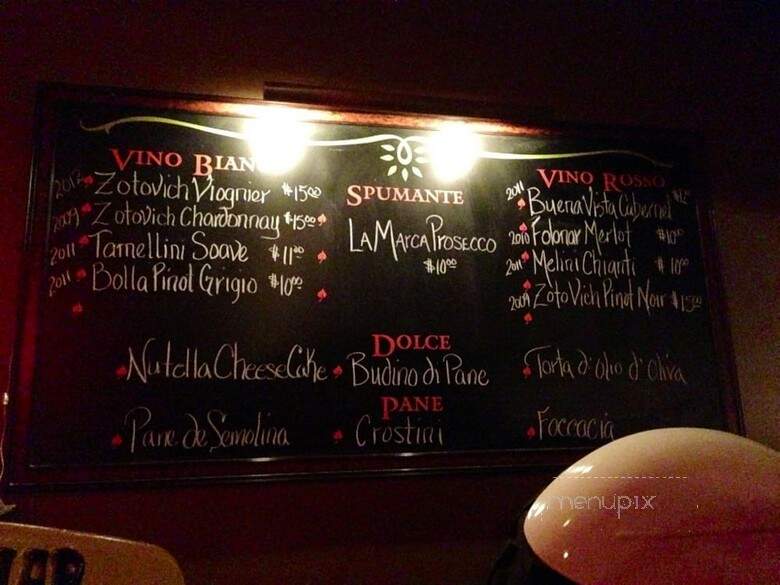 VINO BIAN
2012 Zotovich Viognier $15.00
2009 Zotovich Chardonnay $15.00
2011 Tamellini Soave $11.00
2011 Bolla Pinot Grigio $10.00
SPUMANTE
La Marca Prosecco
$10.00
VINO ROSSO
2011 Buena Vista Cabernet
2010 Folonar Merlot $10.00
2011 Melini Chianti $10.00
2009 Zotovich Pinot Noir $15.00
DOLCE
Nutella CheeseCake Budino di Pane Torta d'olio d'oliva
PANE
Pane de Semolina Crostini Foccacia
menupix